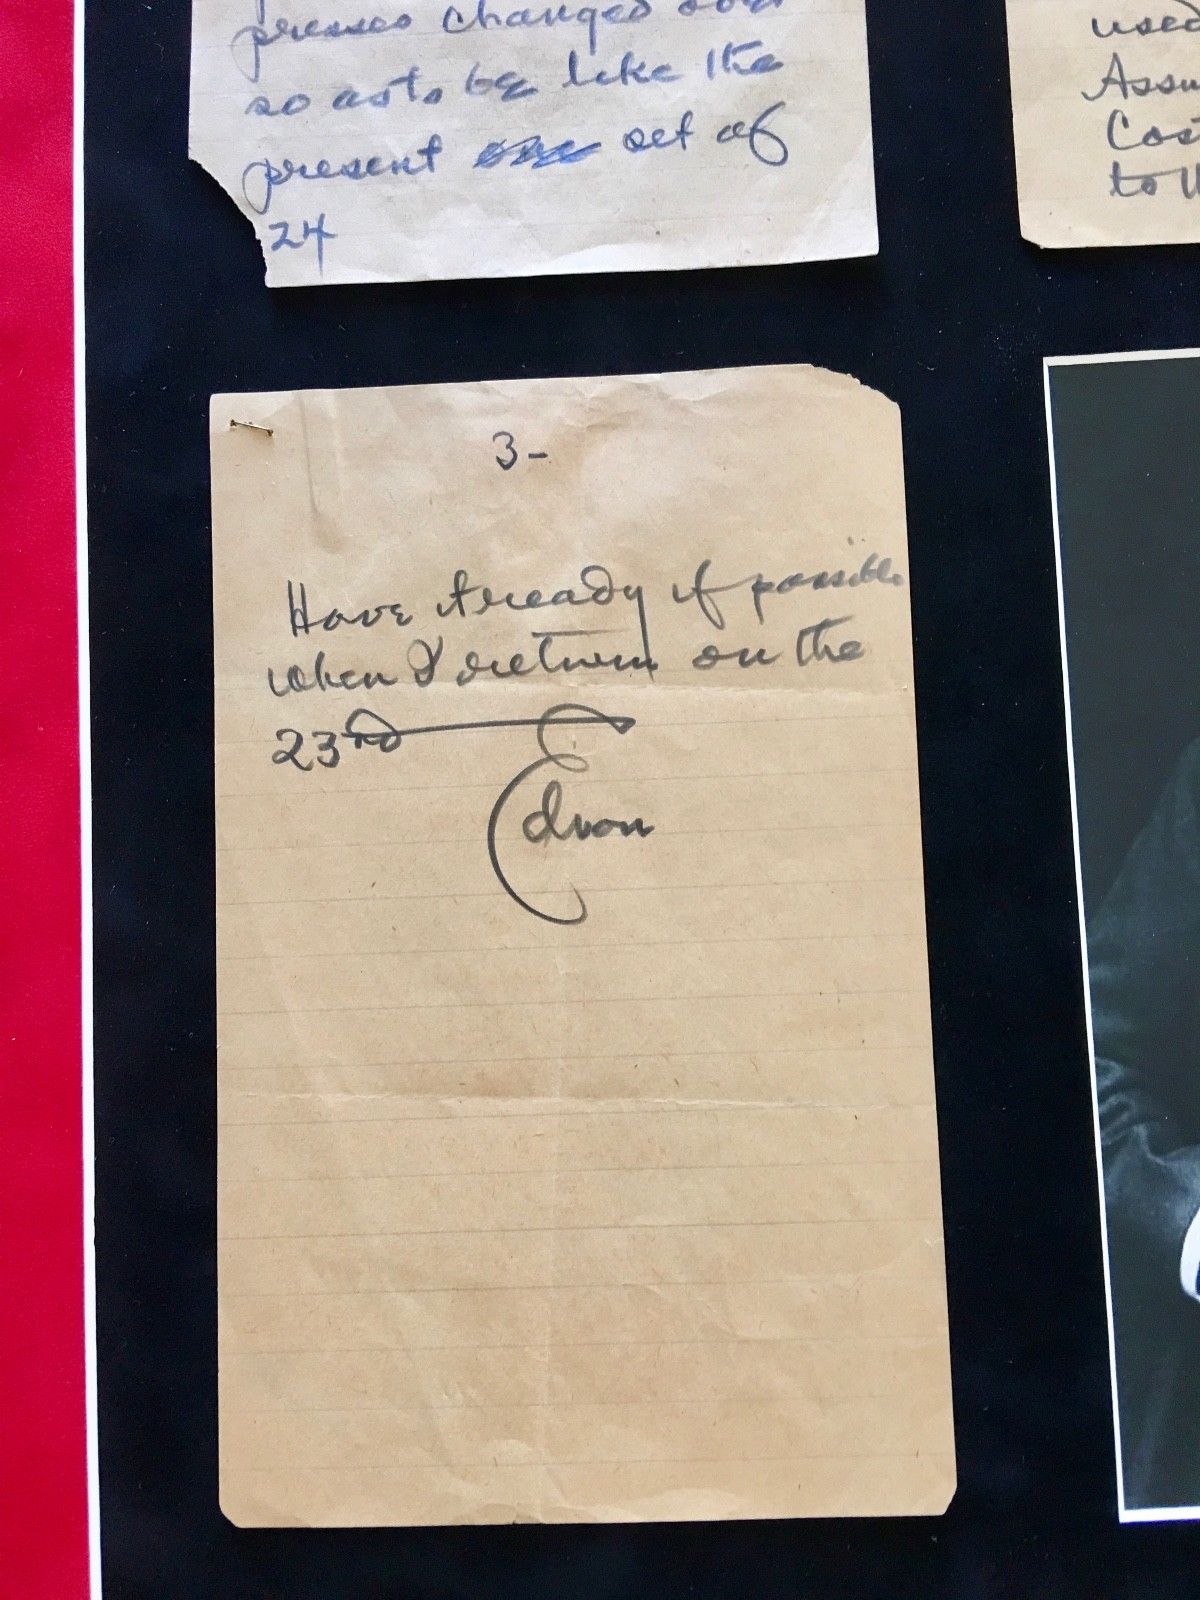 presses changed over
so as to be like the
present set of
24
used
Assu
Cos
to th
3-
Have it ready if possible
when I return on the
23rd
Edison